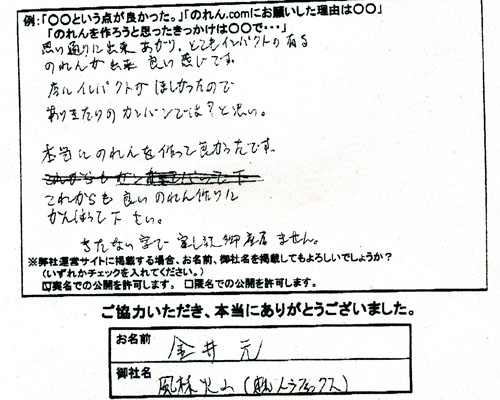 例:「○○という点が良かった。」「のれん.comにお願いした理由は○○」
「のれんを作ろうと思ったきっかけは○○で・・・」
思い通りに出来あがり、とてもインパクトの有る
のれんが出来 良い感じです。
店にインパクトがほしかったので
ありきたりのカンバンでは?と思い。
本当にのれんを作って良かったです。
これからも良いのれん作りに
がんばって下さい。
きたない字で 申し訳御座居ません。
※弊社運営サイトに掲載する場合、お名前、御社名を掲載してもよろしいでしょうか?
(いずれかチェックを入れてください。)
☑実名での公開を許可します。 □匿名での公開を許可します。
ご協力いただき、本当にありがとうございました。
お名前 金井 元
御社名 風林火山 (㈱トラアックス)